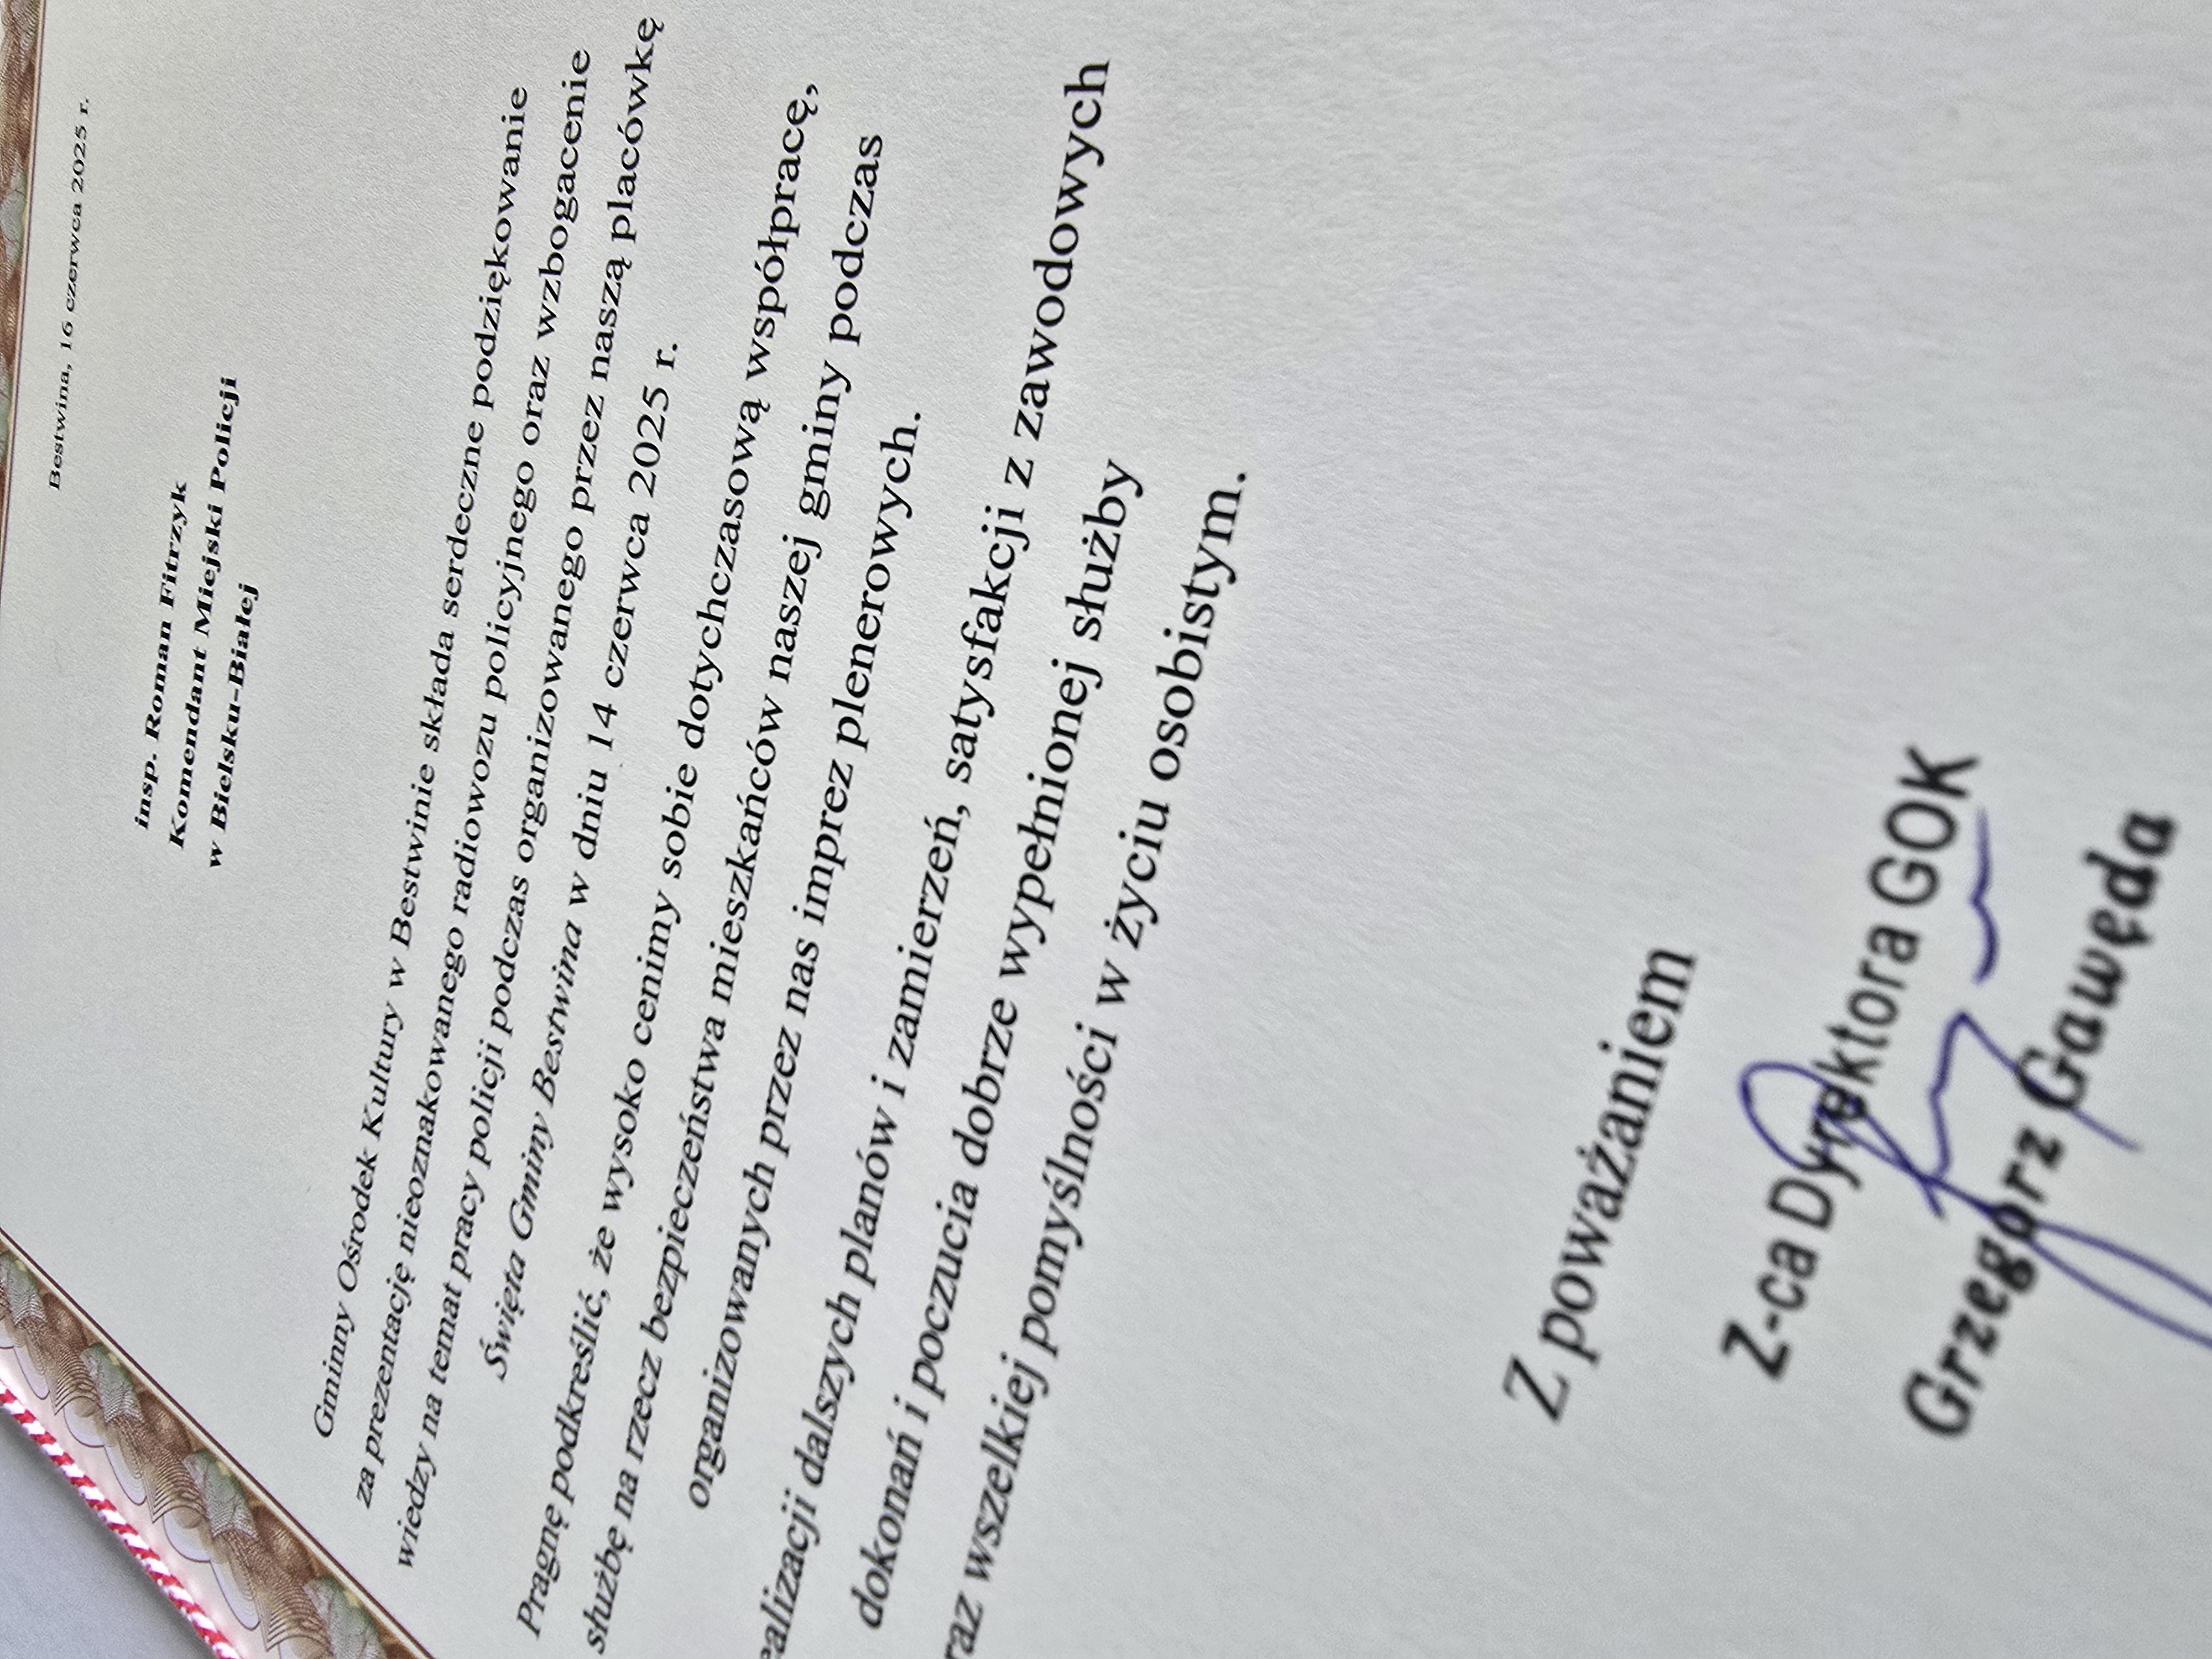 Bestwina, 16 czerwca 2025 r.
insp. Roman Fitrzyk
Komendant Miejski Policji
w Bielsku-Białej
Gminny Ośrodek Kultury w Bestwinie składa serdeczne podziękowanie
za prezentację nieoznakowanego radiowozu policyjnego oraz wzbogacenie
wiedzy na temat pracy policji podczas organizowanego przez naszą placówkę
Święta Gminy Bestwina w dniu 14 czerwca 2025 r.
Pragnę podkreślić, że wysoko cenimy sobie dotychczasową współpracę,
służbę na rzecz bezpieczeństwa mieszkańców naszej gminy podczas
organizowanych przez nas imprez plenerowych.
ealizacji dalszych planów i zamierzeń, satysfakcji z zawodowych
dokonań i poczucia dobrze wypełnionej służby
raz wszelkiej pomyślności w życiu osobistym.
Z poważaniem
Z-ca Dyrektora GOK
Grzegorz Gawęda